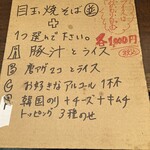 目玉焼そば 並
+
1つ選んで下さい。
各1,000円
A 豚汁とライス
B 唐アゲ2コとライス
C お好きなアルコール1杯
D 韓国のり+チーズ+キムチ
トッピング3種のせ